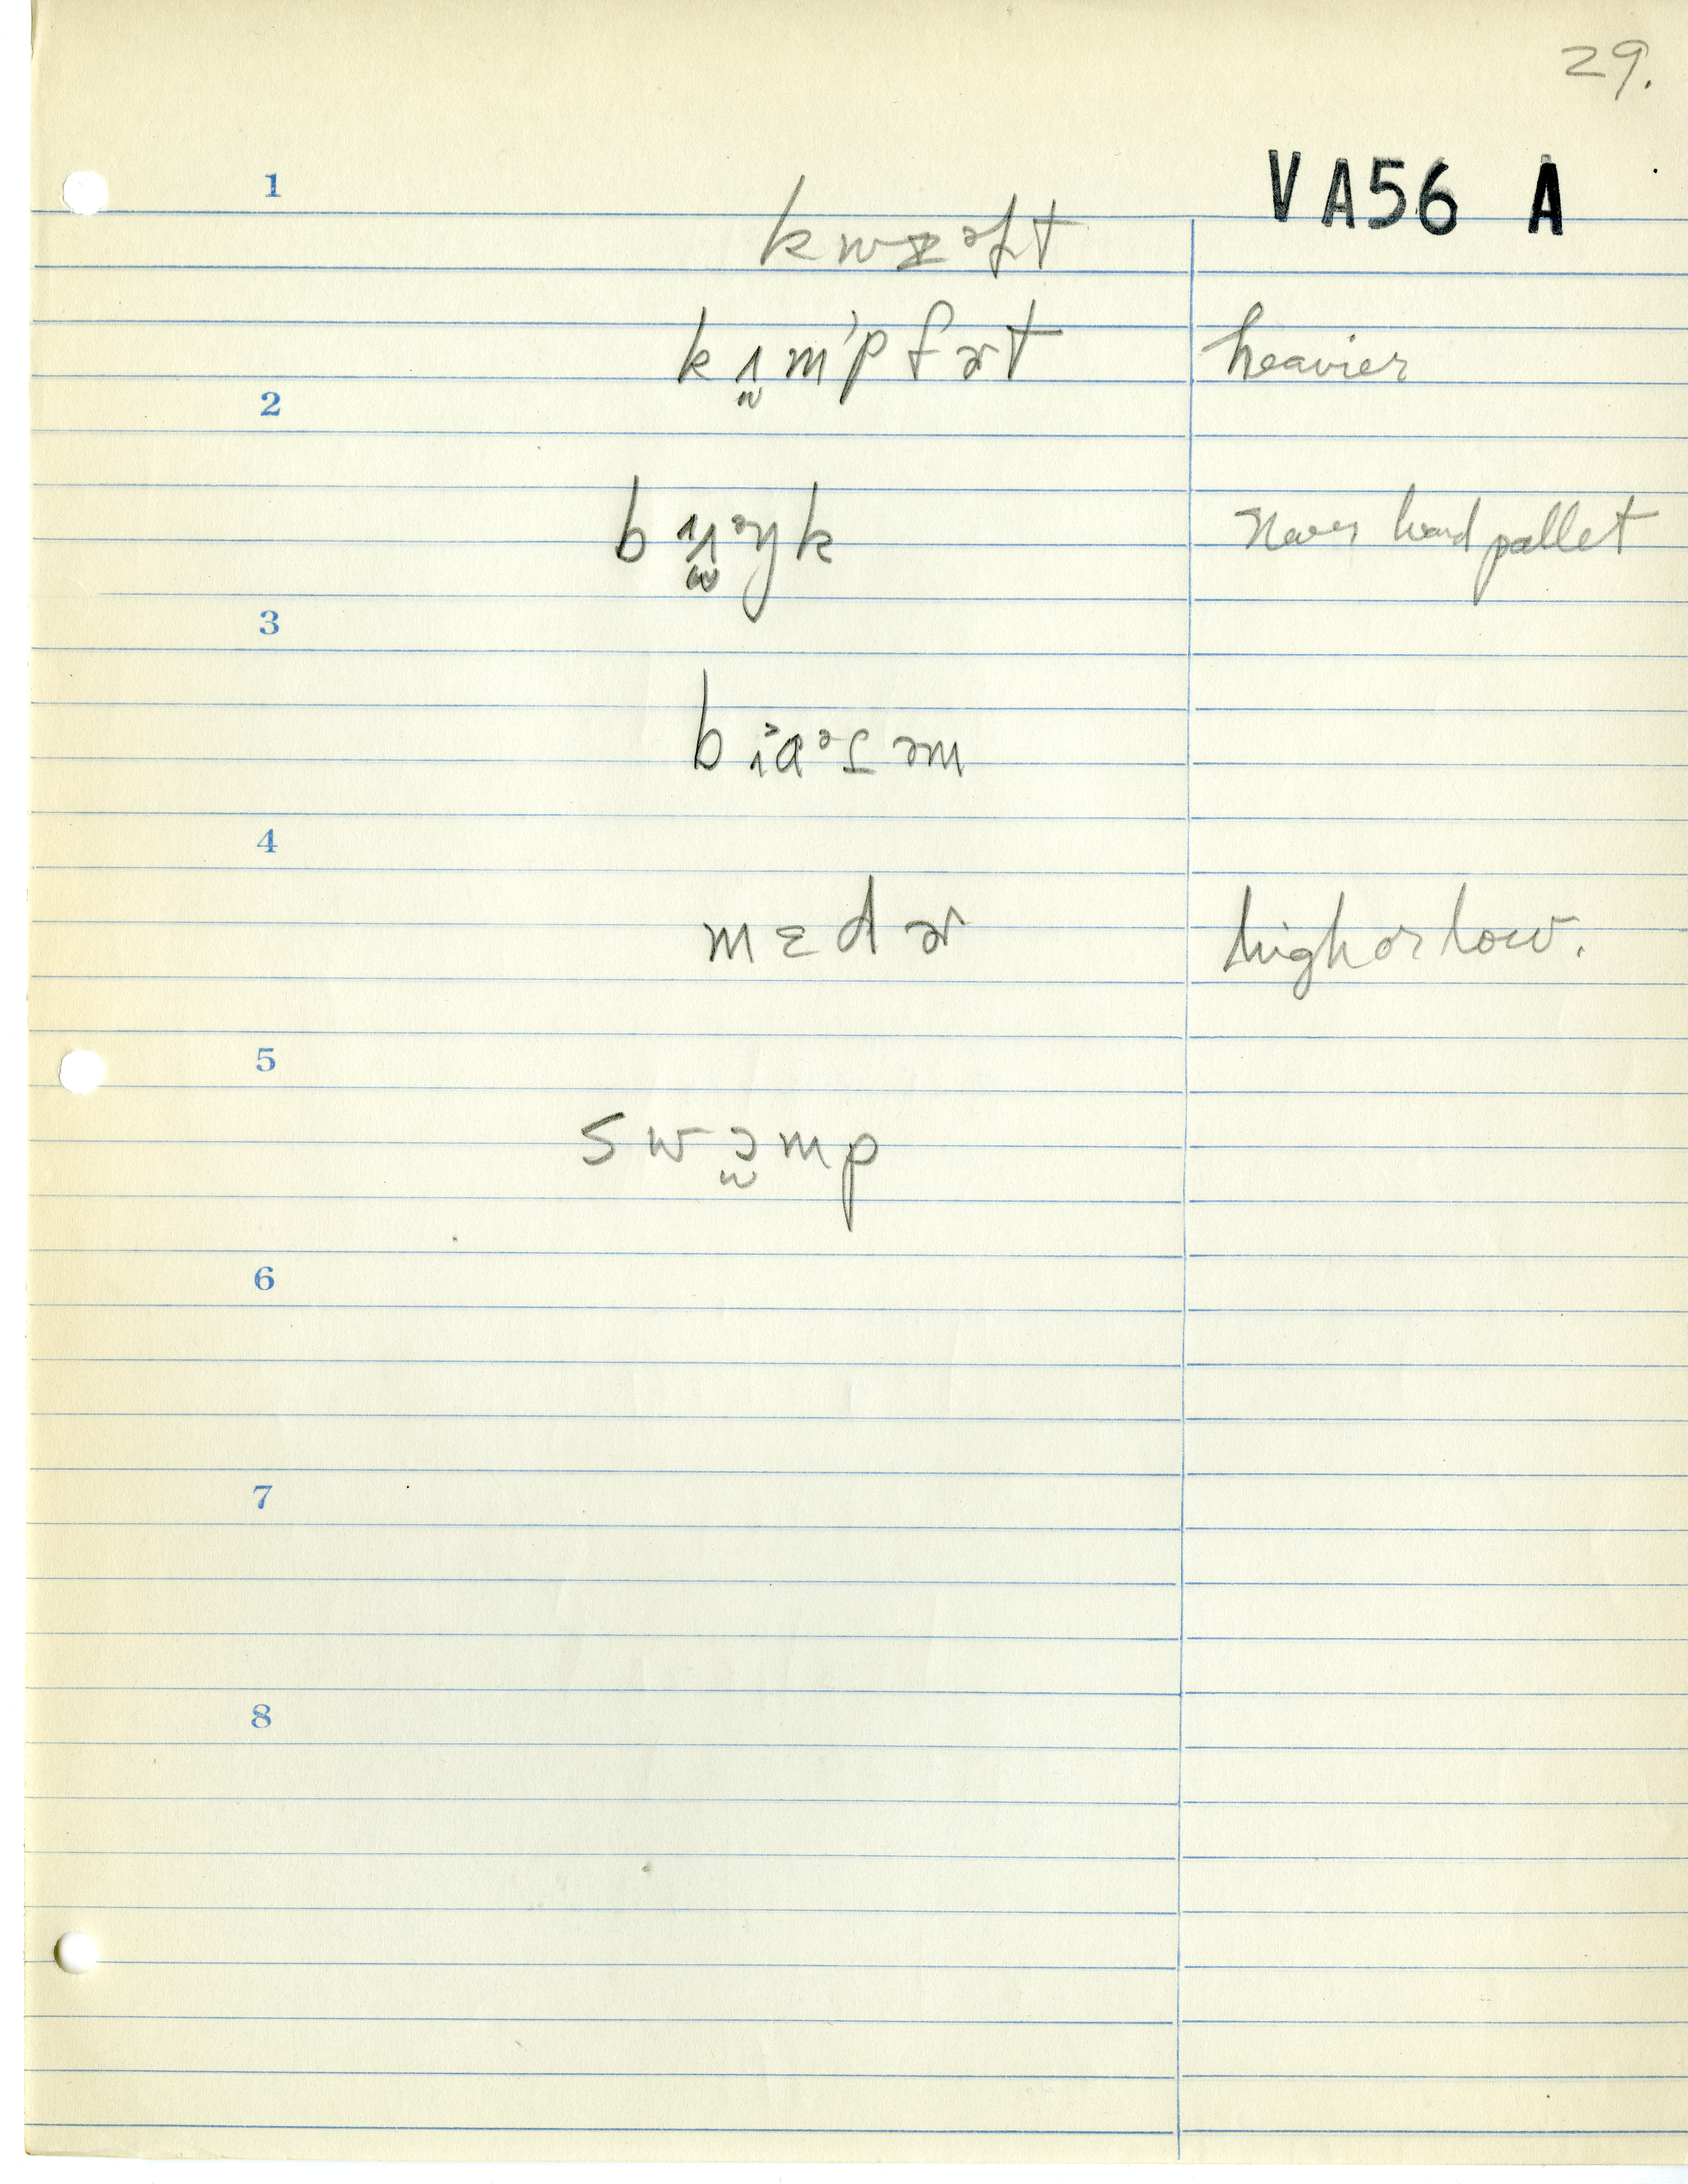 29.
VA56 A
1
kwɪᵊɫt
kɪ̯m'pfɚt heavier
2
never heard pallet
3
4
mɛdɚ high or low.
5
swɔ̯mp
6
7
8